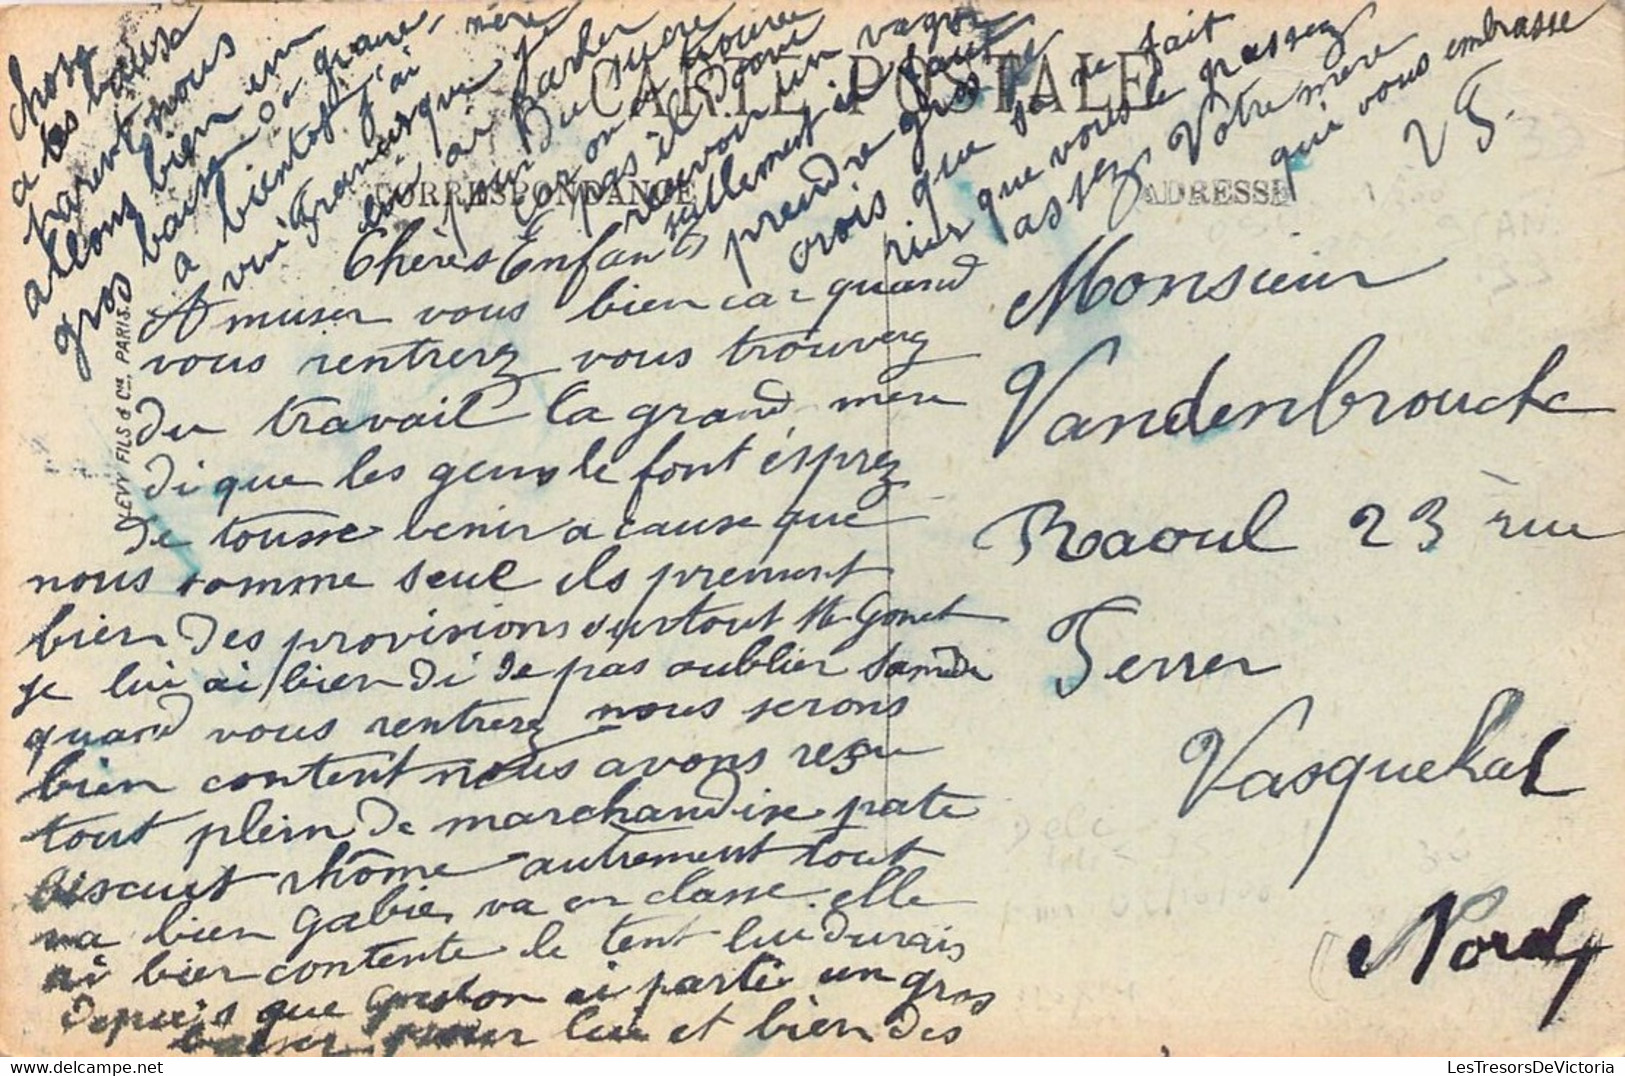 CARTE POSTALE
CORRESPONDANCE
ADRESSE
LEVY FILS & Cie, PARIS
Chères Enfants
Amuser vous bien car quand
vous rentrerz vous trouverz
du travail la grand mère
di que les gens le font ésprez
de tousse venir a cause que
nous somme seul ils prennent
bien des provisions surtout Me Gonet
je lui ai bien di de pas oublier samedi
quand vous rentrerz nous serons
bien content nous avons resu
tout plein de marchandise pate
biscuit rhôme autrement tout
va bien Gabie va en classe. elle
ai bien contente le tent lui durais
depuis que Gaston ai partie un gros
baiser pour lui et bien des
chose
a tes
parent nous
allons bien un
gros baiser
a bientot j'ai
vui grand mère
du sucre
on trouve
pas il
recevoir un vagon
tellement il faut
prendre gros je
crois que sa ne fait
rien que vous le passez
assez Votre mère
qui vous embrasse
Monsieur
Vandenbroucke
Raoul 23 rue
Ferrer
Vasquehal
Nord
LesTresorsDeVictoria